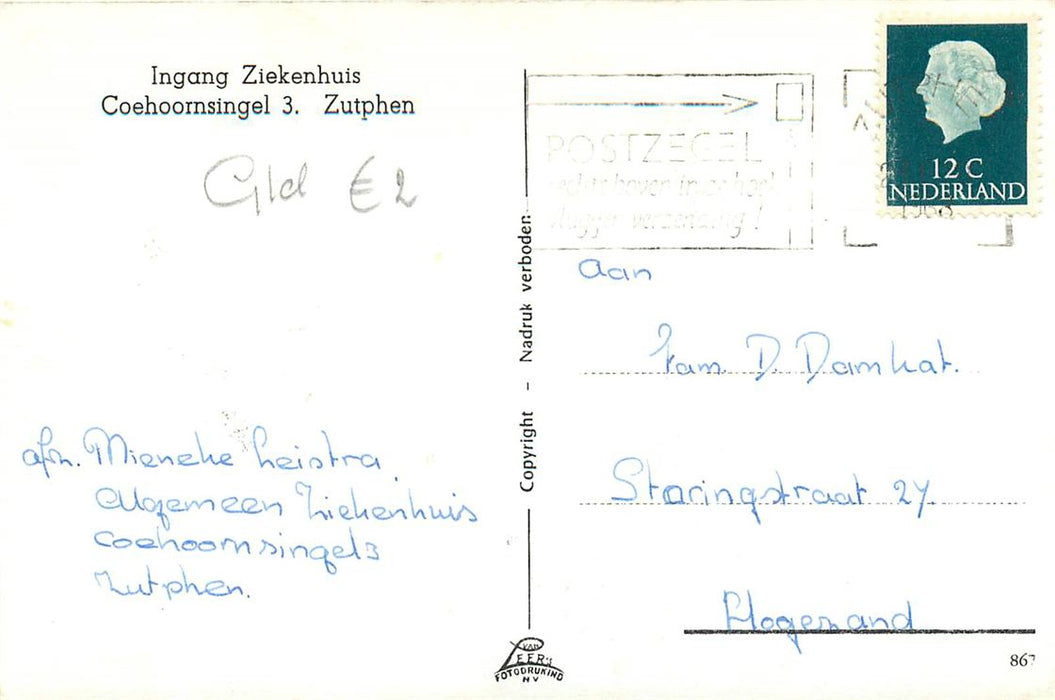 Ingang Ziekenhuis
Coehoornsingel 3. Zutphen
Gld €2
afz. Mieneke Leistra
Algemeen Ziekenhuis
Coehoornsingel 3
Zutphen.
Copyright - Nadruk verboden
VAN
LEER'S
FOTODRUKIND
N V
POSTZEGEL
rechts boven in de hoek
vlugger verzending!
1968
12 C
NEDERLAND
Aan
Fam. D. Damhat.
Staringstraat 27.
Hogezand
867